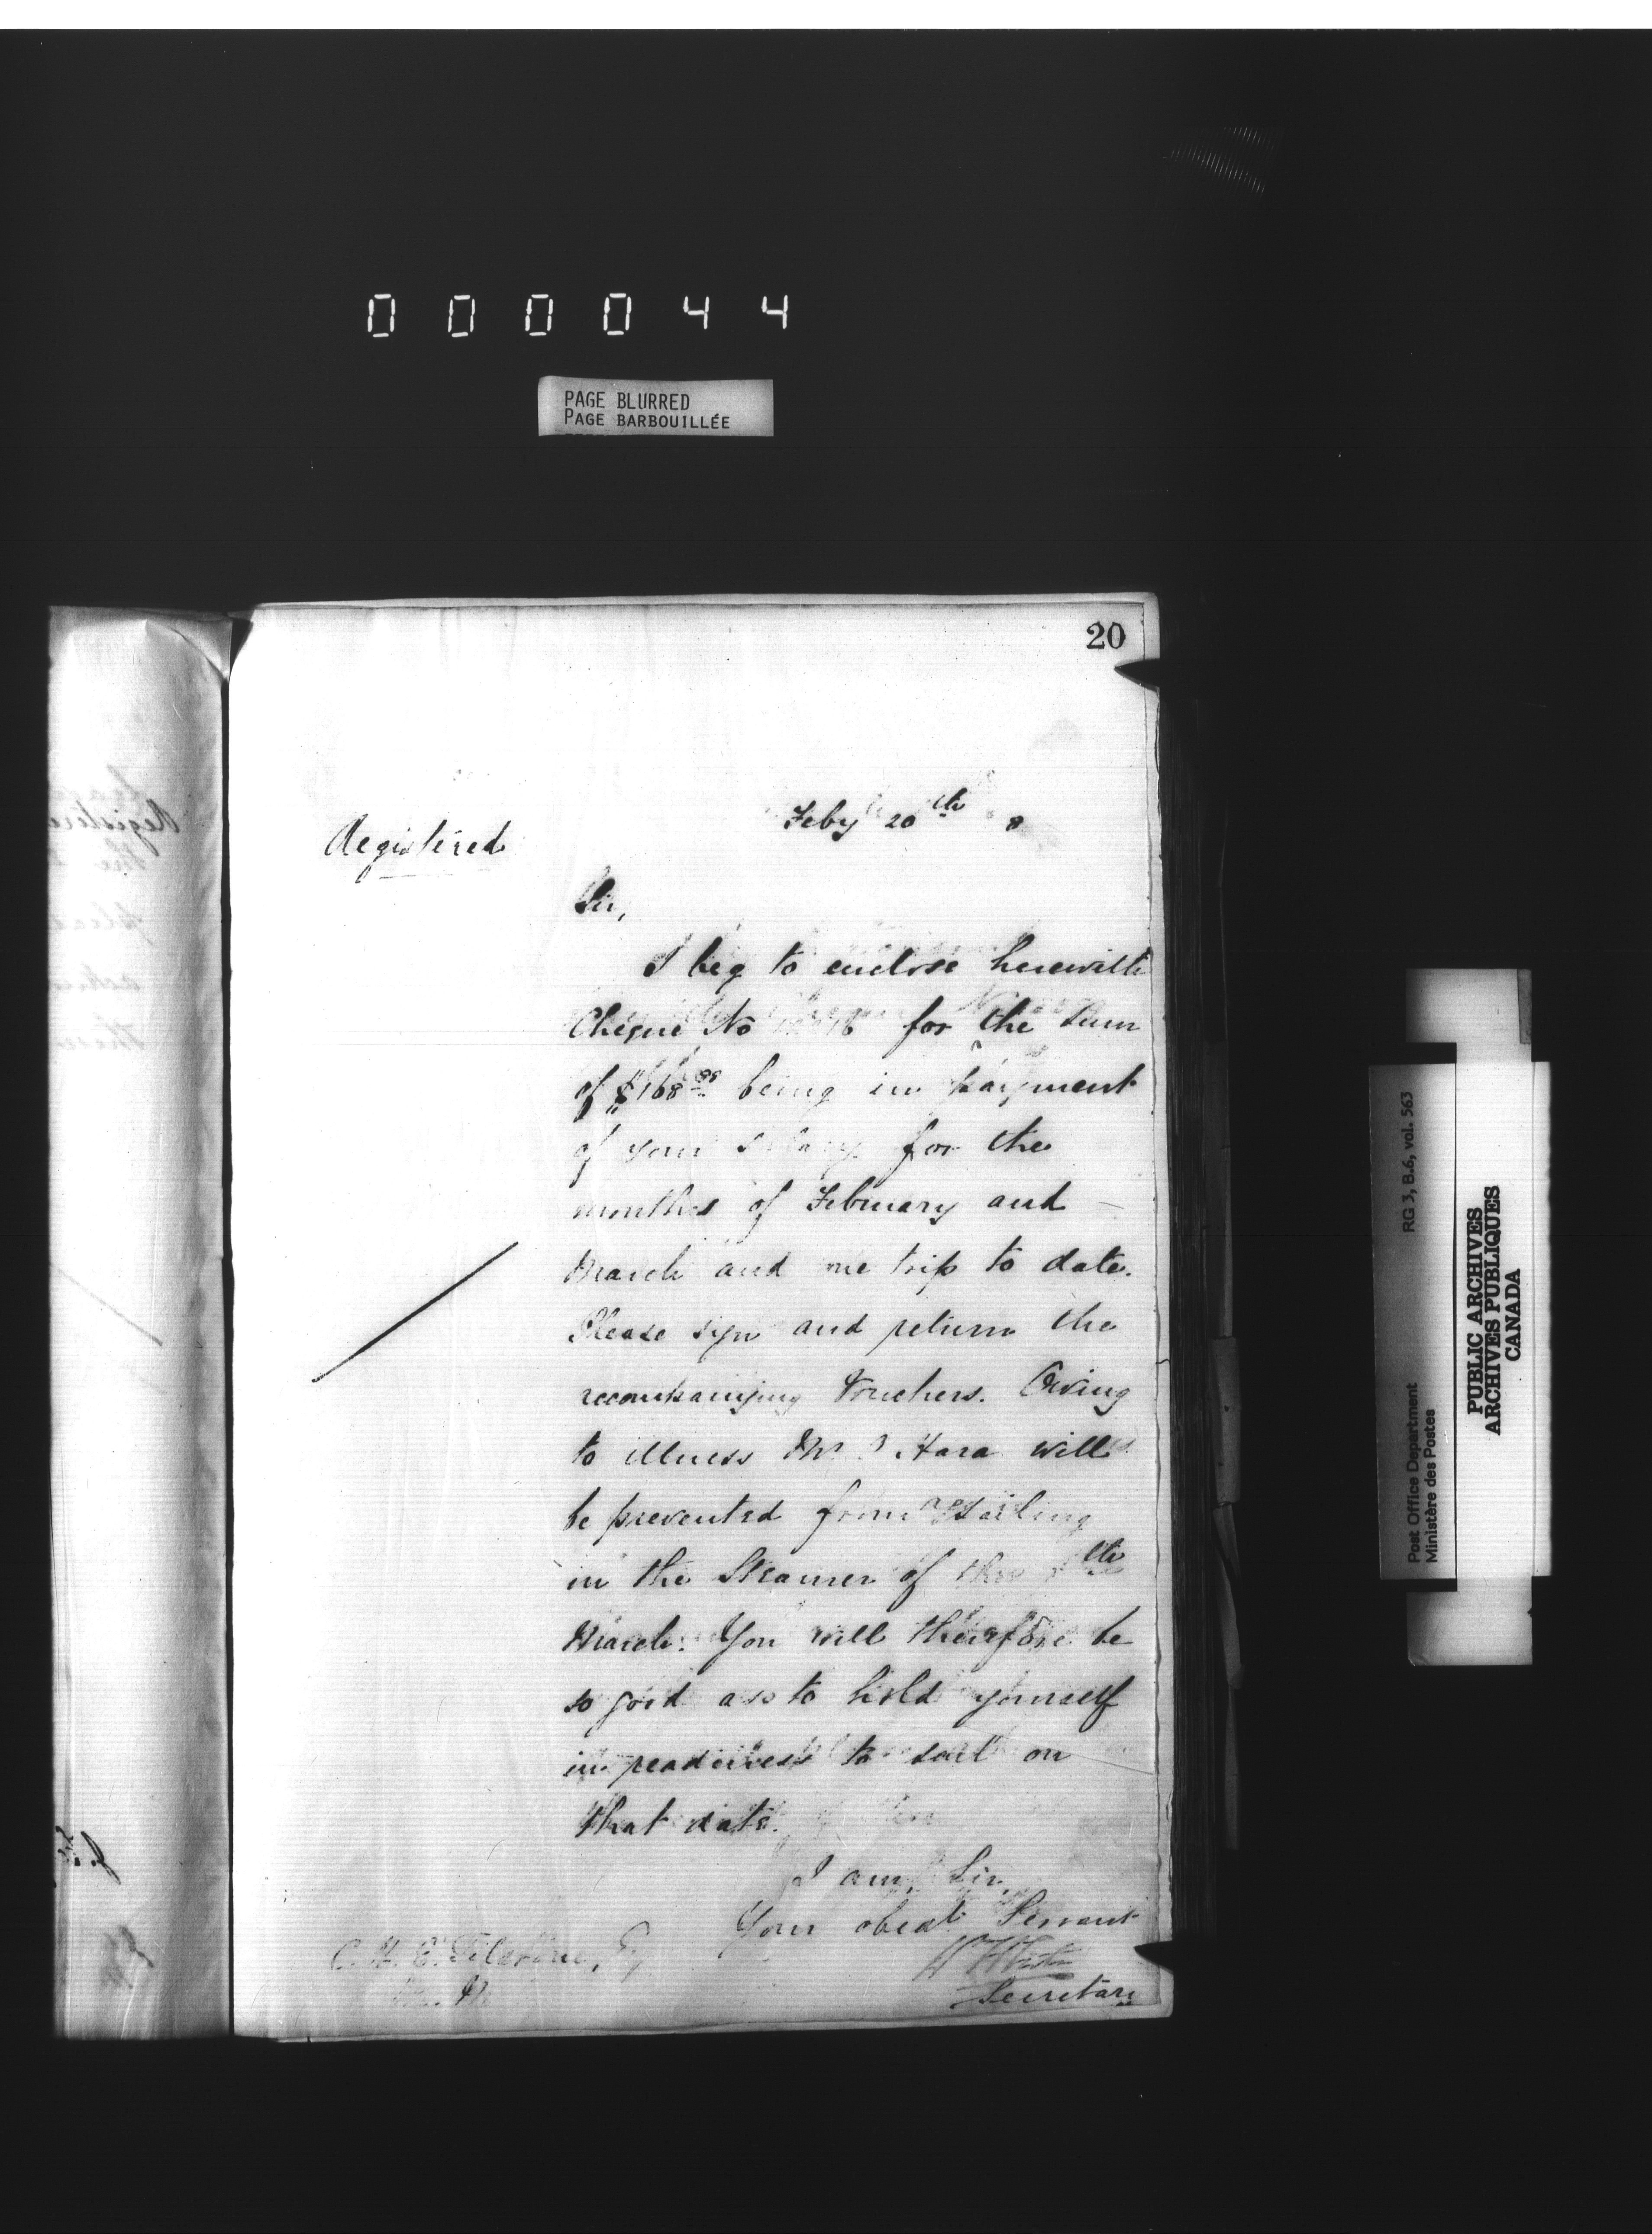 000044
PAGE BLURRED
PAGE BARBOUILLÉE
20
Feby 20th 8
Registered
Sir,
I beg to enclose herewith
Cheque No for the sum
of $168 being in payment
of your salary for the
months of February and
March and one trip to date.
Please sign and return the
accompanying vouchers. Owing
to illness Mr O'Hara will
be prevented from sailing
in the Steamer of the th
March. You will therefore be
so good as to hold yourself
in readiness to sail on
that date.
I am, Sir,
Your obedt Servant
Secretary
C. H. E. Esq
RG 3, B.6, vol. 563
Post Office Department
Ministère des Postes
PUBLIC ARCHIVES
ARCHIVES PUBLIQUES
CANADA